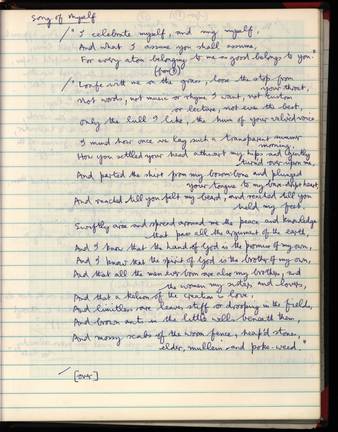 Song of Myself
/ "I celebrate myself, and sing myself,
And what I assume you shall assume,
For every atom belonging to me as good belongs to you."
/ "Loafe with me on the grass, loose the stop from
your throat,
Not words, not music or rhyme I want, not custom
or lecture, not even the best,
Only the lull I like, the hum of your valvèd voice
I mind how once we lay such a transparent summer
morning,
How you settled your head athwart my hips and gently
turned over upon me,
And parted the shirt from my bosom-bone and plunged
your tongue to my bare-stript heart,
And reached till you felt my beard, and reached till you
held my feet.
Swiftly arose and spread around me the peace and knowledge
that pass all the argument of the earth,
And I know that the hand of God is the promise of my own,
And I know that the spirit of God is the brother of my own,
And that all the men ever born are also my brothers, and
the women my sisters and lovers,
And that a kelson of the creation is love,
And limitless are leaves stiff or drooping in the fields,
And brown ants in the little wells beneath them,
And mossy scabs of the worm fence, heap'd stone,
elder, mullein and poke-weed."